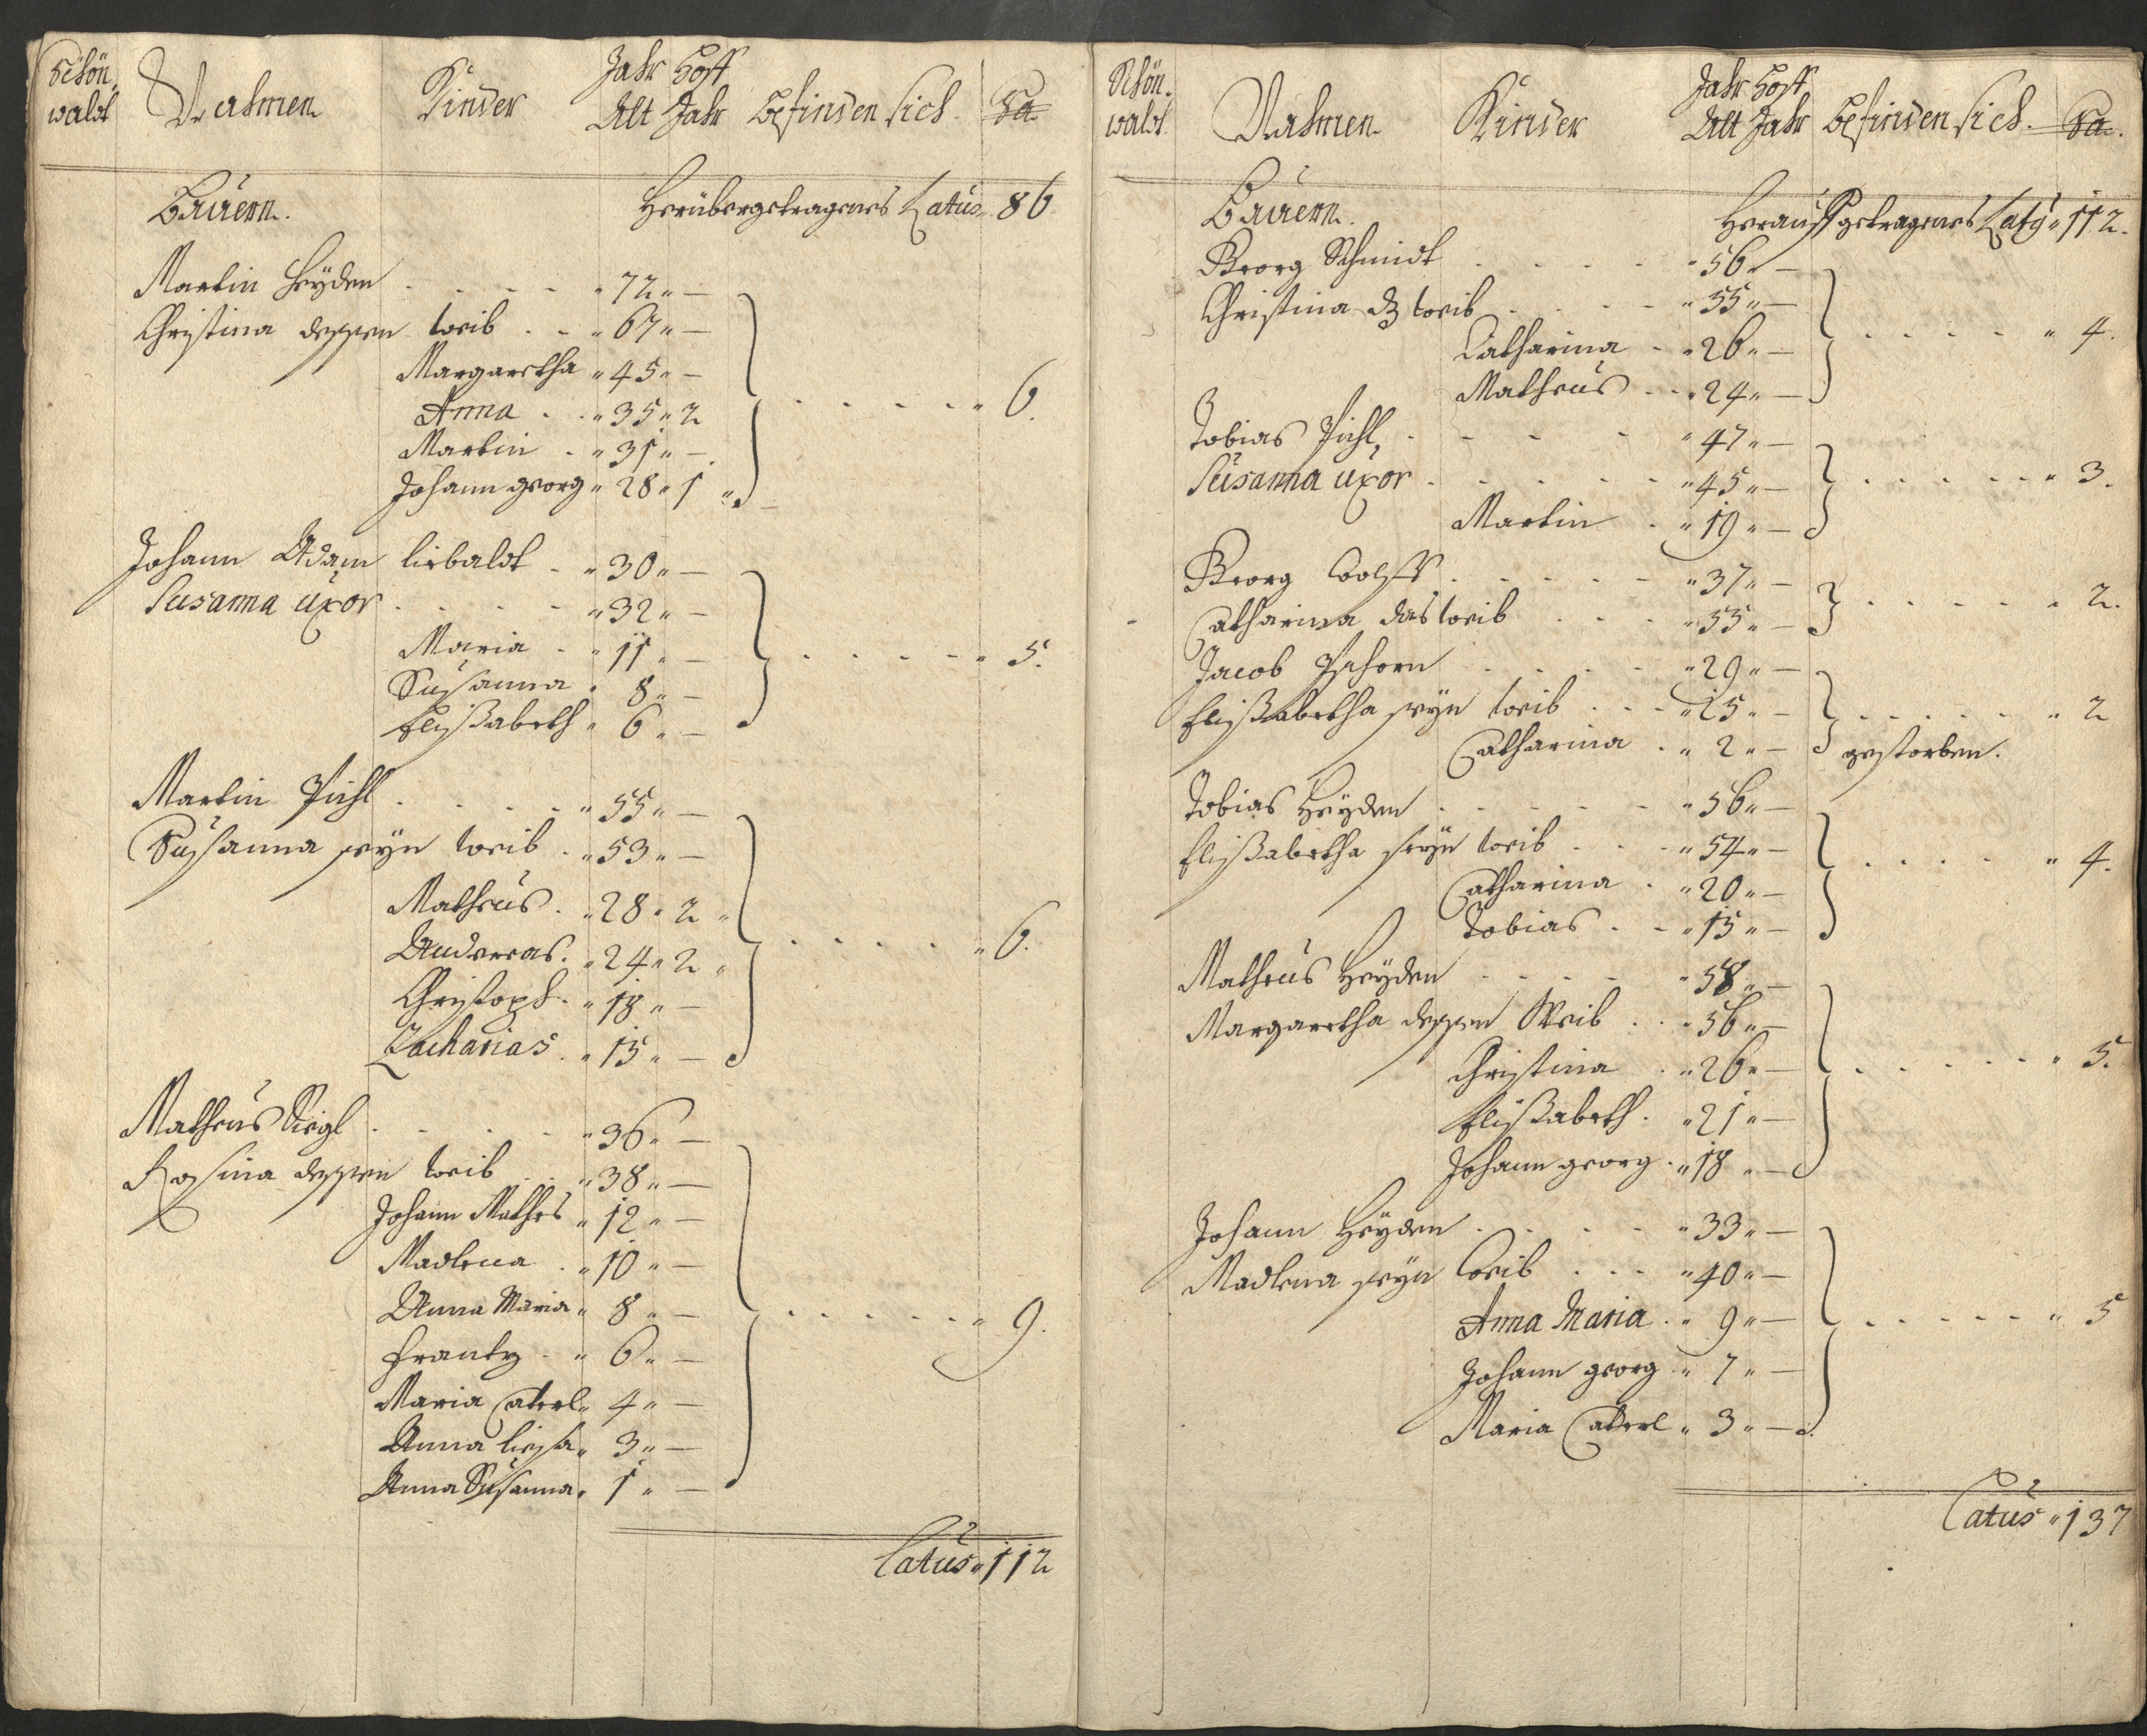 Schön-
waldt
Nahmen
Kinder
Jahr Hoff
Alt Jahr
Befinden sich.
Sa.
Bauern.
Herübergetragenes Latus „ 86
Martin Heyden „ 72 „ —
Christina dessen weib „ 67 „ —
Margaretha „ 45 „ —
Anna „ 35 „ 2
Martin „ 31 „ —
Johann georg „ 28 „ 1
„ 6.
Johann Adam liebaldt „ 30 „ —
Susanna uxor „ 32 „ —
Maria „ 11 „ —
Susanna „ 8 „ —
Elisabeth „ 6 „ —
„ 5.
Martin Pichl „ 55 „ —
Susanna seyn weib „ 53 „ —
Matheus „ 28 „ 2
Andreas „ 24 „ 2
Christoph „ 18 „ —
Zacharias „ 15 „ —
„ 6.
Matheus Siegl „ 36 „ —
Rosina dessen weib „ 38 „ —
Johann Mathes „ 12 „ —
Madlena „ 10 „ —
Anna Maria „ 8 „ —
Frantz „ 6 „ —
Maria Caterl „ 4 „ —
Anna liesa „ 3 „ —
Anna Susanna „ 1 „ —
„ 9.
Latus „ 112
Schön-
waldt
Nahmen
Kinder
Jahr Hoff
Alt Jahr
Befinden sich.
Sa.
Bauern.
Herauffgetragenes Latus „ 112.
Georg Schmidt „ 56 „ —
Christina weib „ 55 „ —
Catharina „ 26 „ —
Matheus „ 24 „ —
„ 4.
Tobias Pichl „ 47 „ —
Susanna uxor „ 45 „ —
Martin „ 19 „ —
„ 3.
Georg „ 37 „ —
Catharina das weib „ 55 „ —
„ 2.
Jacob Pschorn „ 29 „ —
Elisabetha seyn weib „ 25 „ —
Catharina „ 2 „ — gestorben.
„ 2
Tobias Heyden „ 56 „ —
Elisabetha seyn weib „ 54 „ —
Catharina „ 20 „ —
Tobias „ 15 „ —
„ 4.
Matheus Heyden „ 58 „ —
Margaretha dessen Weib „ 56 „ —
Christina „ 26 „ —
Elisabeth „ 21 „ —
Johann georg „ 18 „ —
„ 5.
Johann Heyden „ 33 „ —
Madlena seyn weib „ 40 „ —
Anna Maria „ 9 „ —
Johann georg „ 7 „ —
Maria Caterl „ 3 „ —
„ 5
Latus „ 137